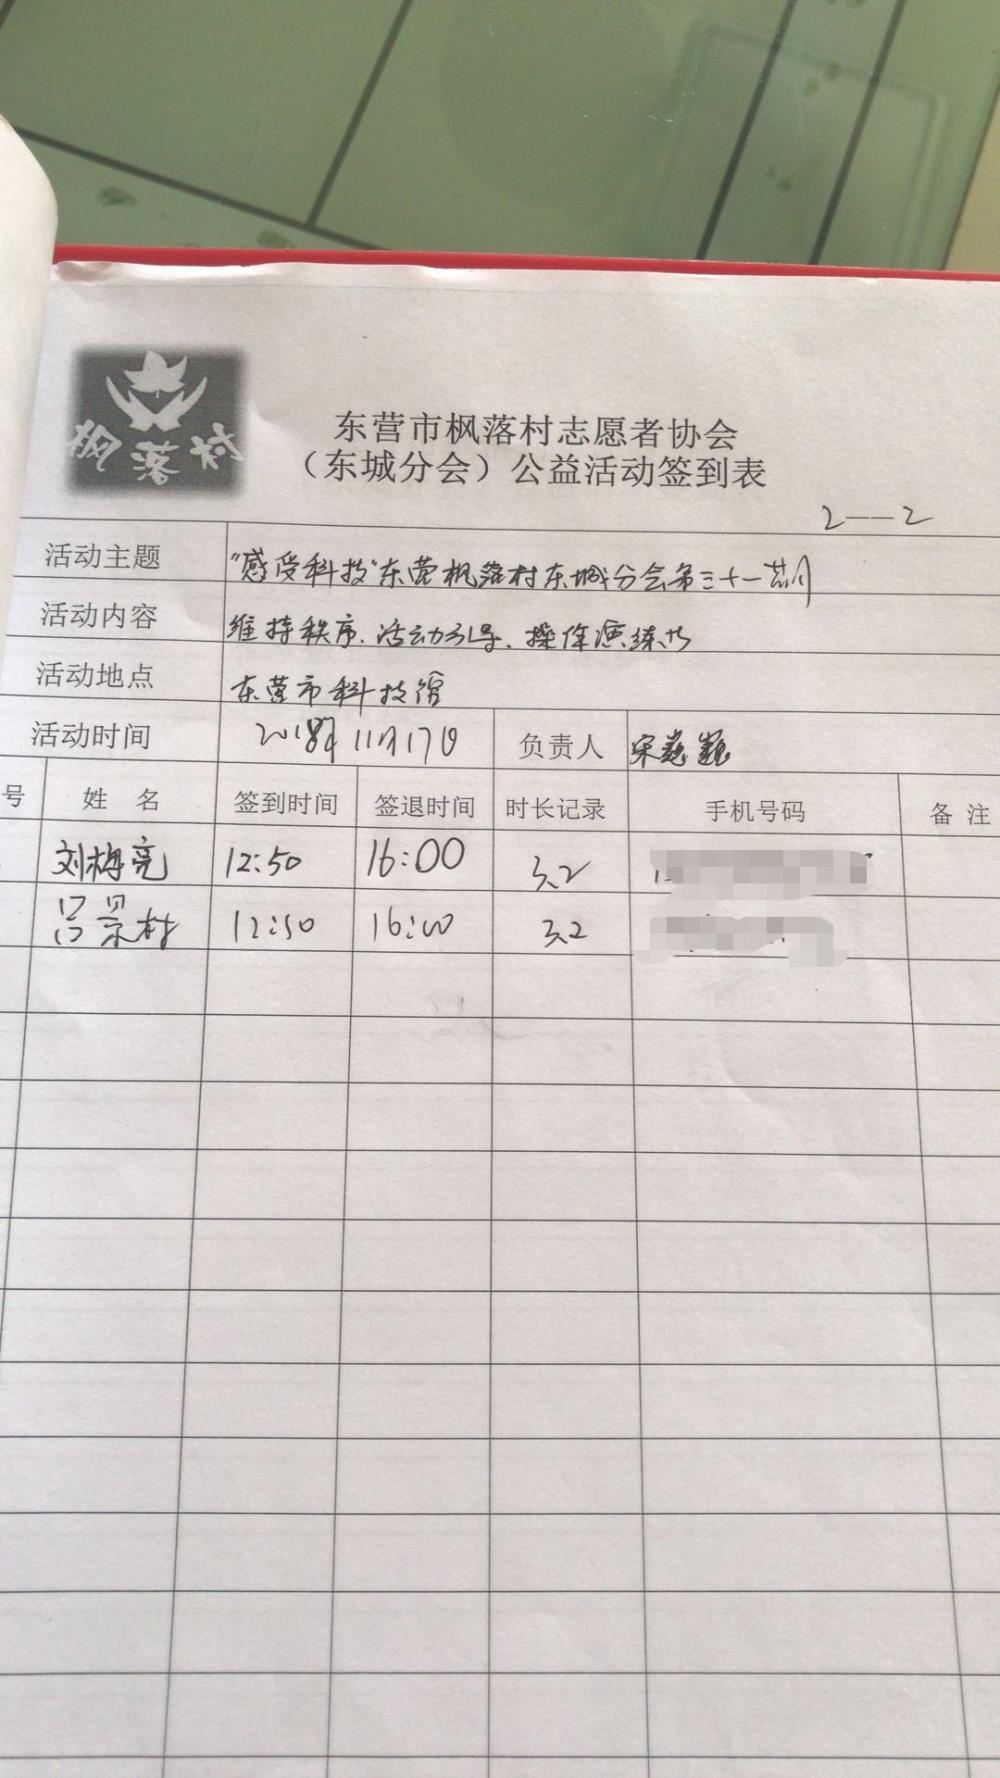 枫落村
东营市枫落村志愿者协会
（东城分会）公益活动签到表
2——2
活动主题 "感受科技"东营枫落村东城分会第三十一期
活动内容 维持秩序、活动引导、操作演练等
活动地点 东营市科技馆
活动时间 2018年 11月17日 负责人 宋
号 姓 名 签到时间 签退时间 时长记录 手机号码 备 注
刘梅亮 12:50 16:00 3.2
吕景村 12:50 16:00 3.2